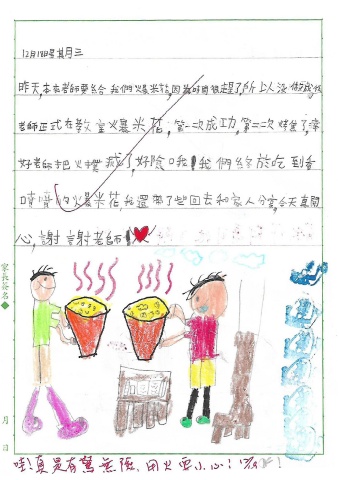 12月18日星其月三
昨天,本來老師要給我們爆米花,因為時間很趕了所以沒做成,
老師正式在教室火爆米花,第一次成功,第二次燒焦了,幸
好老師把火撲滅了好險口我!我們終於吃到香
噴噴的火爆米花,我還帶了些回去和家人分享,今天真開
心,謝謝老師!
家長簽名
月
日
哇!真是有驚無險,用火要小心!